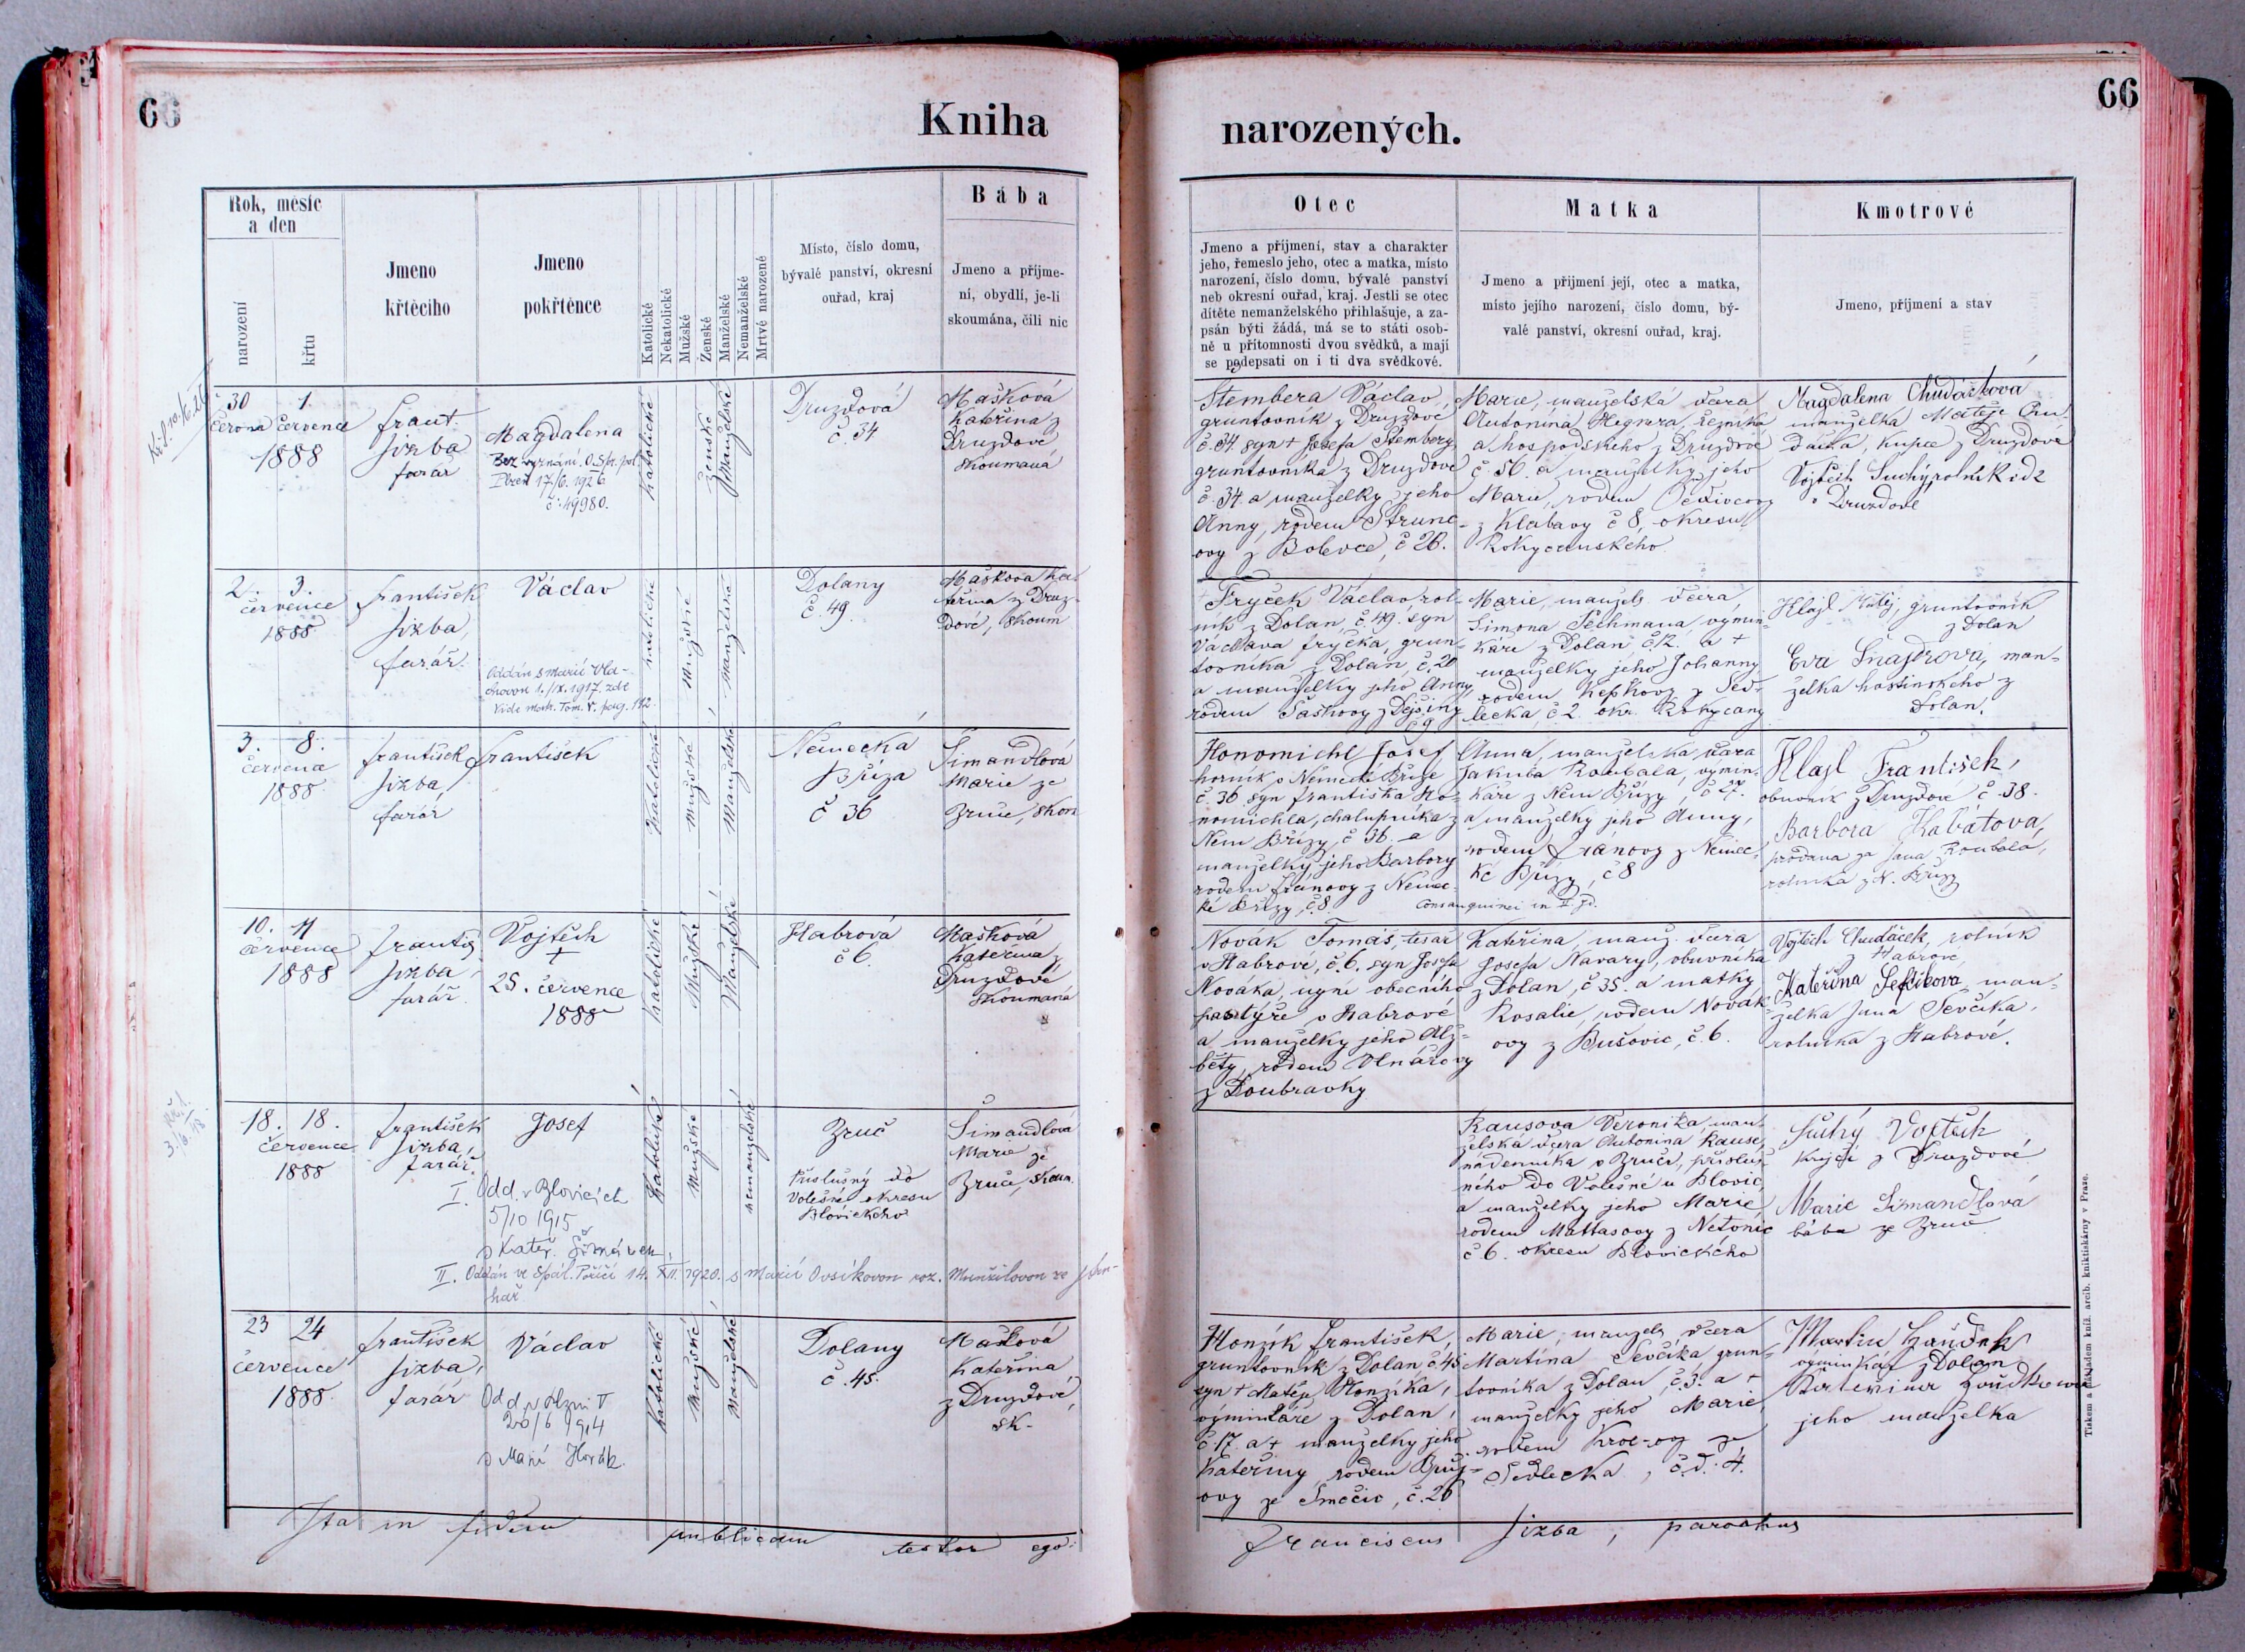 66
Kniha
Rok, měsíc
a den
narození
křtu
Jmeno
křtěcího
Jmeno
pokřtěnce
Katolické
Nekatolické
Mužské
Ženské
Manželské
Nemanželské
Mrtvě narozené
Místo, číslo domu,
bývalé panství, okresní
ouřad, kraj
Bába
Jmeno a příjme-
ní, obydlí, je-li
skoumána, čili nic
30 1.
června července
1888
Frant.
Jizba
farář
Magdalena
Bez vyznání. O. Spr. pol.
Plzeň 17/6. 1926
č: 49980.
Katolické
Ženské
Manželské
Druzdová
č. 34
Mašková
Kateřina z
Druzdové
skoumaná
2. 3.
července
1888
František
Jizba,
farář.
Václav
Oddán s Marií Vla-
chovou 1./IX. 1917, zde
Vide mat. Tom. V. pag. 192.
katolické
Mužské
manželské
Dolany
č. 49.
Mašková Ka-
teřina z Druz-
dové, skoum
3. 8.
července
1888
František
Jizba,
farář
František
Katolické
Mužské
Manželské
Německá
Bříza
č 36
Šimandlová
Marie ze
Zruče, skoum
10. 11
července
1888
Františ.
Jizba,
farář.
Vojtěch
+
25. července
1888
Katolické
Mužské
Manželské
Habrová
č 6.
Mašková
Kateřina z
Druzdové
skoumaná
18. 18.
července
1888
František
Jizba,
farář.
Josef
I. Odd. v Blovicích
5/10 1915
s Kateř.
II. Oddán ve Spál. Poříčí 14. XII. 1920. s Marií Ovsíkovou roz.
Katolické
Mužské
nemanželské
Zruč
Příslušný do
Volešné okresu
Blovického
Šimandlová
Marie ze
Zruče, skoum.
23 24
července
1888
František
Jizba,
farář
Václav
Odd. v Plzni
20/6 1914
s Marií Horák.
Katolické
Mužské
Manželské
Dolany
č. 45.
Mašková
Kateřina
z Druzdové,
sk.
Ita in fidem publicam testor ego:
66
narozených.
Otec
Jmeno a příjmení, stav a charakter
jeho, řemeslo jeho, otec a matka, místo
narození, číslo domu, bývalé panství
neb okresní ouřad, kraj. Jestli se otec
dítěte nemanželského přihlašuje, a za-
psán býti žádá, má se to státi osob-
ně u přítomnosti dvou svědků, a mají
se podepsati on i ti dva svědkové.
Matka
Jmeno a příjmení její, otec a matka,
místo jejího narození, číslo domu, bý-
valé panství, okresní ouřad, kraj.
Kmotrové
Jmeno, příjmení a stav
Štembera Václav
gruntovník z Druzdové
č. 34. syn + Josefa Štembery,
gruntovníka z Druzdové
č. 34. a manželky jeho
Anny, rodem Strunc-
ovy z Bolevce, č 26.
Marie, manželská dcera
Antonína Hegnera, řezníka
a hospodského z Druzdové
č. 50. a manželky jeho
Marie, rodem
z Klabavy č 8, okresu
Rokycanského.
Magdalena Chudáčková
manželka Matěje Chu-
dáčka, kupce z Druzdové
Vojtěch Suchý, rolník
v Druzdové
Fryček Václav, rol-
ník z Dolan, č. 49, syn
Václava Fryčka, grun-
tovníka z Dolan, č. 20
a manželky jeho Anny,
rodem Šaškovy z Dejšiny
č 9
Marie, manžels. dcera
Šimona Pechmana, výmin-
káře z Dolan č. 12. a +
manželky jeho Johanny
rodem Kepkovy z Sed-
lecka, č 2. okr. Rokycany
Klajl Matěj, gruntovník
z Dolan
Eva Šnajdrová, man-
želka hostinského z
Dolan.
Honomichl Josef
horník v Německé Bříze
č. 36. syn Františka Ho-
nomichla, chalupníka z
Něm Břízy, č 36. a
manželky jeho Barbory
rodem Fránovy z Němec-
ké Břízy, č. 8.
Anna, manželská dcera
Jakuba Roubala, výmin-
káře z Něm Břízy, č 27.
a manželky jeho Anny,
rodem Fránovy z Němec-
ké Břízy, č 8
Consanguinei in II. gd.
Klajl František,
obuvník z Druzdové č. 38.
Barbora Kabátová,
provdaná za Jana Roubala,
rolníka z N. Břízy
Novák Tomáš, tesař
v Habrové, č. 6. syn Josefa
Nováka, nyní obecního
pastýře v Habrové
a manželky jeho Alž-
běty, rodem Vlnářovy
z Doubravky
Kateřina, manž. dcera
Josefa Navary, obuvníka
z Dolan, č 35. a matky
Rosalie, rodem Novák-
ovy z Bušovic, č. 6.
Vojtěch Chudáček, rolník
z Habrové
Kateřina Ševčíkova, man-
želka Jana Ševčíka,
rolníka z Habrové.
Rausova Veronika, man-
želská dcera Antonína Rause,
nádenníka v Zruči, přísluš-
ného do Volešné u Blovic,
a manželky jeho Marie
rodem Mattasovy z Netonic
č 6. okresu Blovického
Suchý Vojtěch
krejčí z Druzdové
Marie Šimandlová
bába ze Zruče
Honzík František,
gruntovník z Dolan č. 45
syn + Matěje Honzíka,
výminkáře z Dolan,
č. 17. a + manželky jeho
Kateřiny, rodem Bříz-
ovy ze Smečic, č. 26
Marie, manžels. dcera
Martina Ševčíka, grun-
tovníka z Dolan, č. 3. a +
manželky jeho Marie,
rodem Kroc-ovy ze
Sedlecka, č. d. 4.
Martin
výminkář z Dolan
jeho manželka
Franciscus Jizba, parochus
Tiskem a nákladem kníž. arcib. knihtiskárny v Praze.